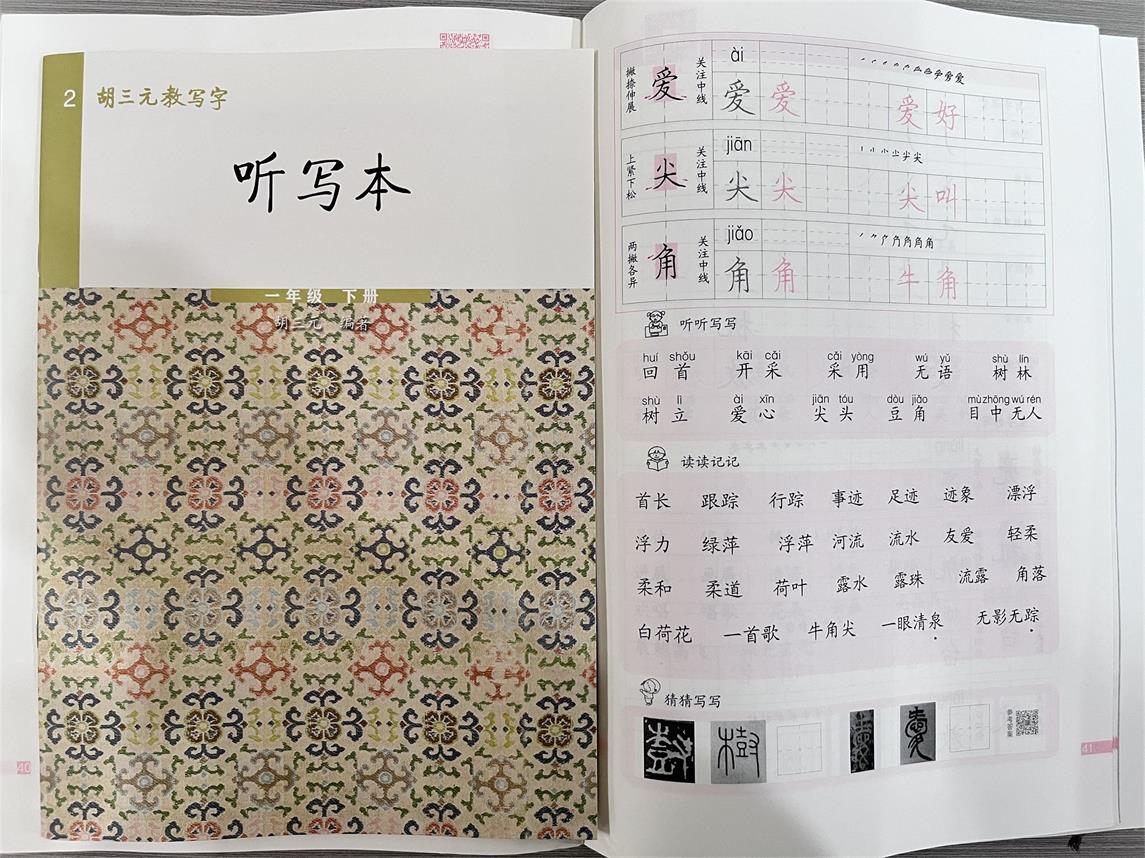 2 胡三元教写字
听写本
一年级 下册
胡三元 编著
40
撇捺伸展 爱 关注中线 ài
爱 爱 爱 好
上紧下松 尖 关注中线 jiān
尖 尖 尖 叫
两撇各异 角 关注中线 jiǎo
角 角 牛 角
听听写写
huí shǒu kāi cǎi cǎi yòng wú yǔ shù lín
回 首 开 采 采 用 无 语 树 林
shù lì ài xīn jiān tóu dòu jiǎo mù zhōng wú rén
树 立 爱 心 尖 头 豆 角 目 中 无 人
读读记记
首长 跟踪 行踪 事迹 足迹 迹象 漂浮
浮力 绿萍 浮萍 河流 流水 友爱 轻柔
柔和 柔道 荷叶 露水 露珠 流露 角落
白荷花 一首歌 牛角尖 一眼清泉 无影无踪
猜猜写写
樹 愛
参考答案
41